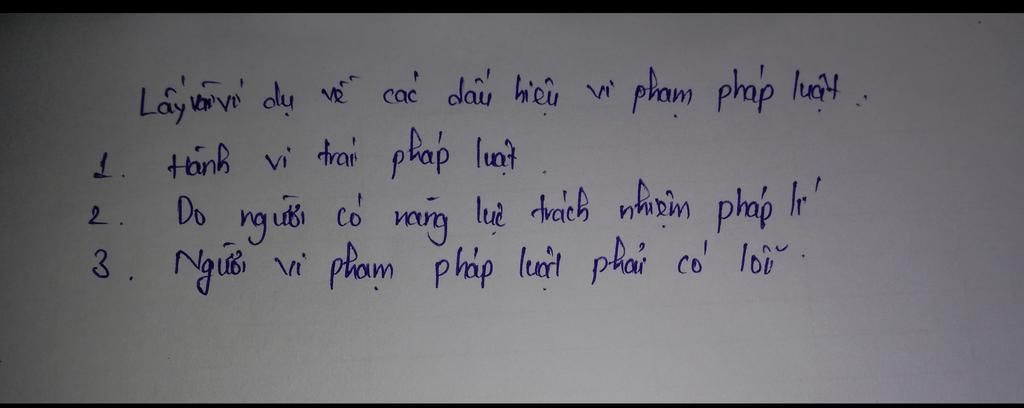 Lấy ví dụ về các dấu hiệu vi phạm pháp luật.
1. Hành vi trái pháp luật.
2. Do người có năng lực trách nhiệm pháp lí
3. Người vi phạm pháp luật phải có lỗi.